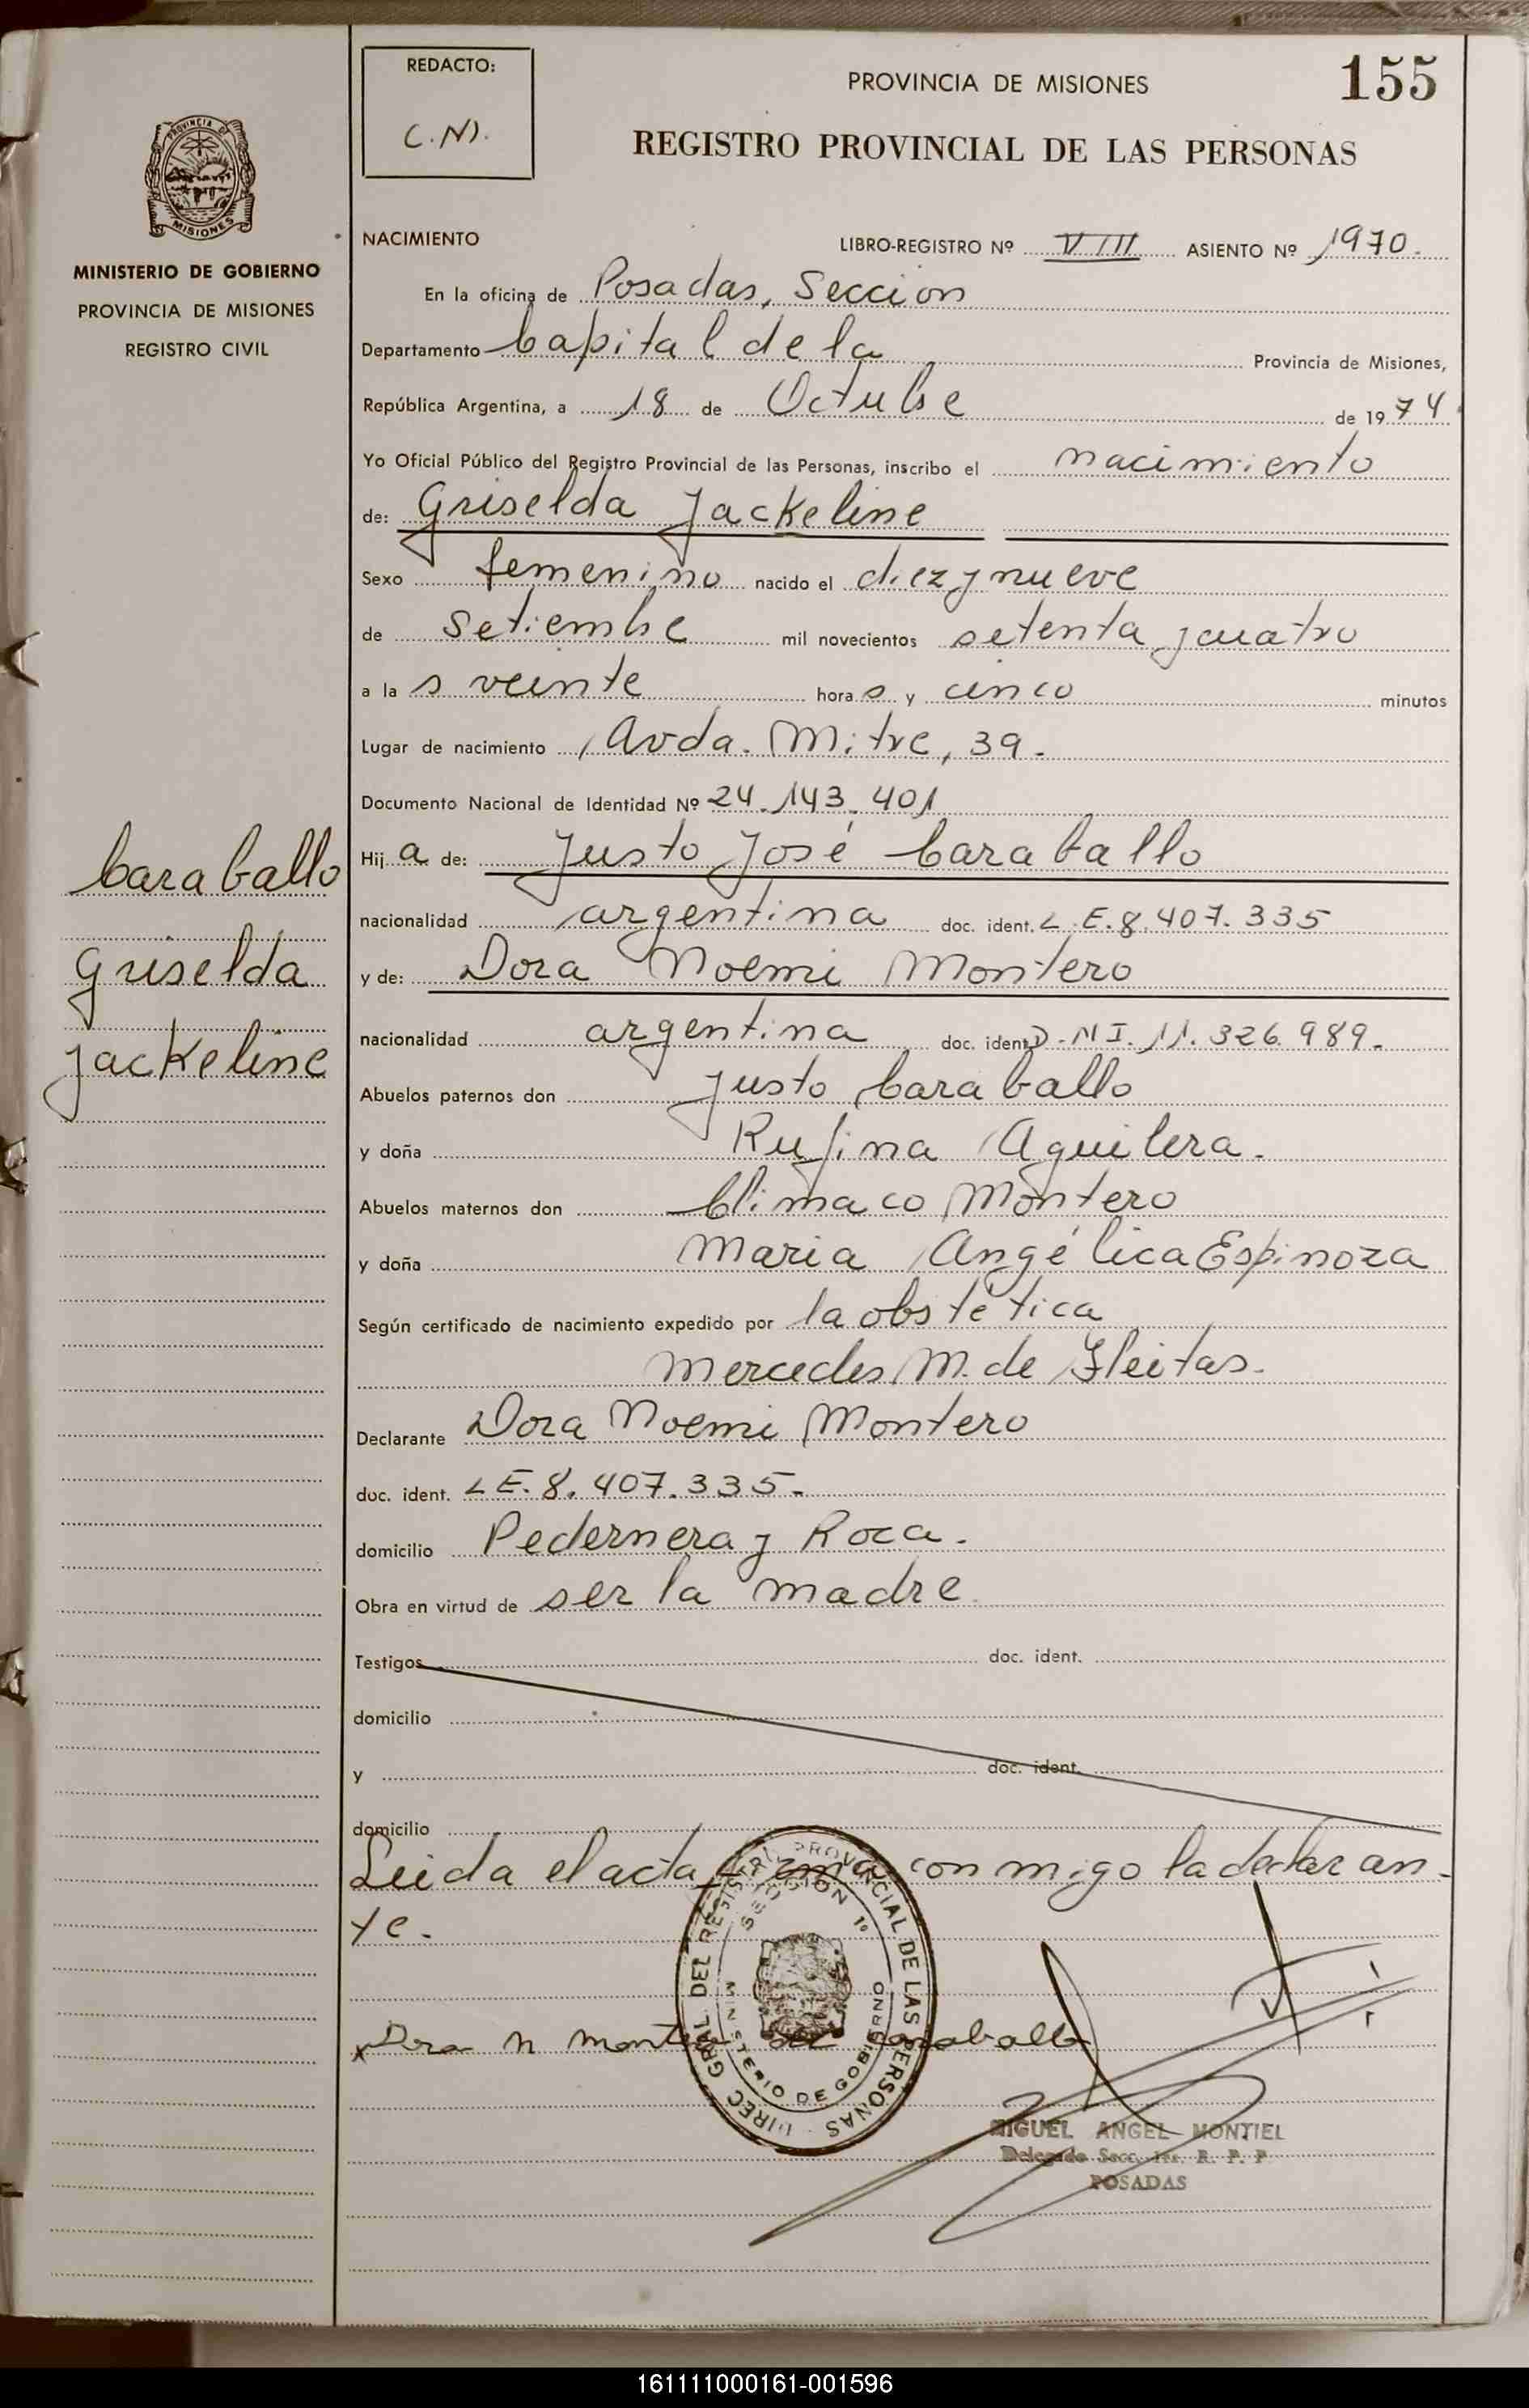 REDACTO:
C.N.
PROVINCIA DE MISIONES
155
REGISTRO PROVINCIAL DE LAS PERSONAS
PROVINCIA DE
MISIONES
MINISTERIO DE GOBIERNO
PROVINCIA DE MISIONES
REGISTRO CIVIL
NACIMIENTO
LIBRO-REGISTRO Nº VIII ASIENTO Nº 1970.
En la oficina de Posadas, Seccion
Departamento Capital de la Provincia de Misiones,
República Argentina, a 18 de Octubre de 1974.
Yo Oficial Público del Registro Provincial de las Personas, inscribo el nacimiento
de: Griselda Jackeline
Sexo femenino nacido el diez y nueve
de Setiembre mil novecientos setenta y cuatro
a la s veinte hora s y cinco minutos
Lugar de nacimiento Avda. Mitre, 39.
Documento Nacional de Identidad Nº 24.143.401
Hij a de: Justo José Caraballo
nacionalidad argentina doc. ident. L.E. 8.407.335
y de: Dora Noemi Montero
nacionalidad argentina doc. ident D.NI. 11.326.989.
Abuelos paternos don Justo Caraballo
y doña Rufina Aguilera.
Abuelos maternos don Climaco Montero
y doña Maria Angélica Espinoza
Según certificado de nacimiento expedido por la obstetica
Mercedes M. de Fleitas.
Declarante Dora Noemi Montero
doc. ident. LE. 8.407.335.
domicilio Pedernera y Roca.
Obra en virtud de ser la madre
Testigos doc. ident.
domicilio
y doc. ident.
domicilio
Leida el acta firma con migo la declaran-
te.
Caraballo
Griselda
Jackeline
x Dora N Montero de Caraballo
DIREC GRAL. DEL REGISTRO PROVINCIAL DE LAS PERSONAS
SECCION 1º
MINISTERIO DE GOBIERNO
MIGUEL ANGEL MONTIEL
Delegado Secc. 1ra. R. P. P
POSADAS
161111000161-001596